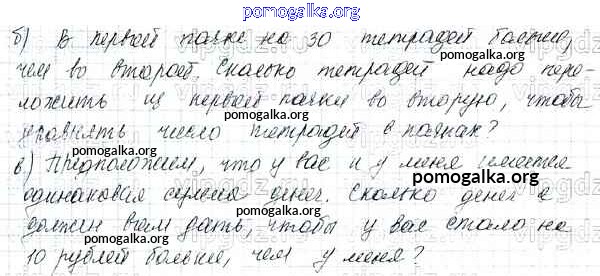 pomogalka.org
б) В первой пачке на 30 тетрадей больше,
pomogalka.org
чем во второй. Сколько тетрадей надо пере-
pomogalka.org
ложить из первой пачки во вторую, чтобы
pomogalka.org
уравнять число тетрадей в пачках?
pomogalka.org
в) Предположим, что у вас и у меня имеется
pomogalka.org
одинаковая сумма денег. Сколько денег я
pomogalka.org
должен вам дать, чтобы у вас стало на
pomogalka.org
10 рублей больше, чем у меня?
pomogalka.org